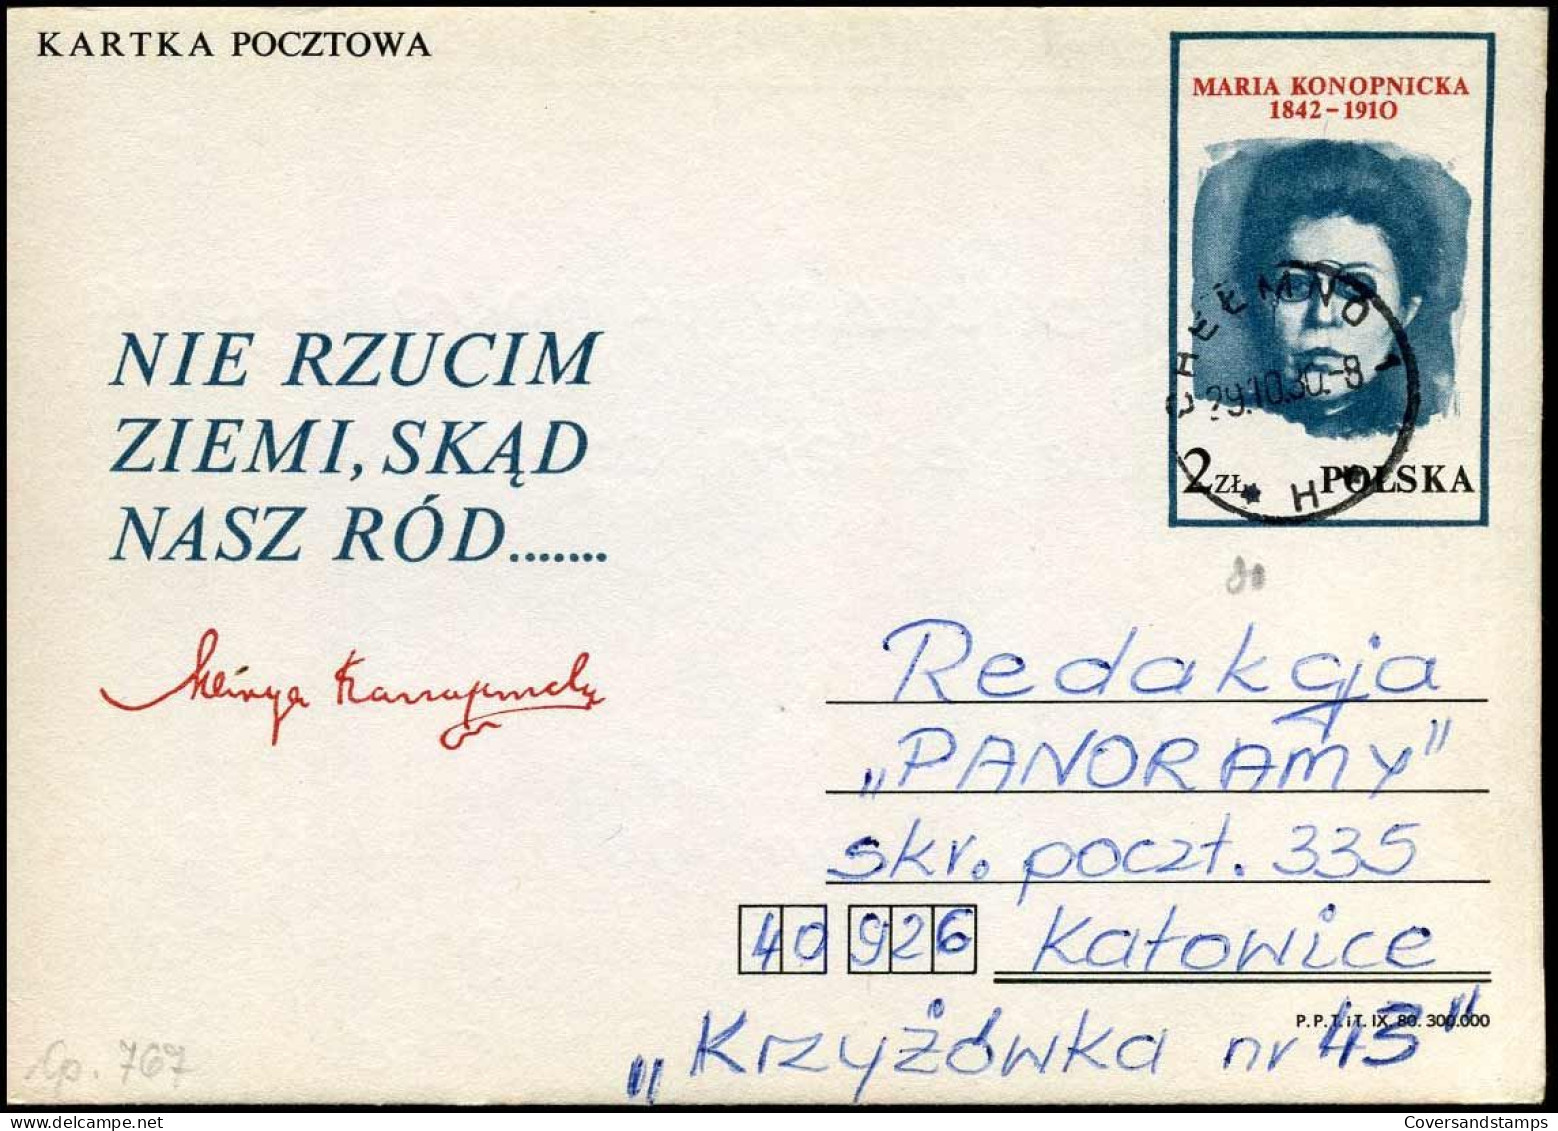 KARTKA POCZTOWA
MARIA KONOPNICKA
1842-1910
CHEŁMNO 1
29.10.80.-8
2 ZŁ POLSKA
NIE RZUCIM
ZIEMI, SKĄD
NASZ RÓD.......
Redakcja
„PANORAMY"
skr. poczt. 335
40 926 Katowice
P.P.T.iT. IX. 80. 300.000
„Krzyżówka nr 43"
Cp. 767
Coversandstamps